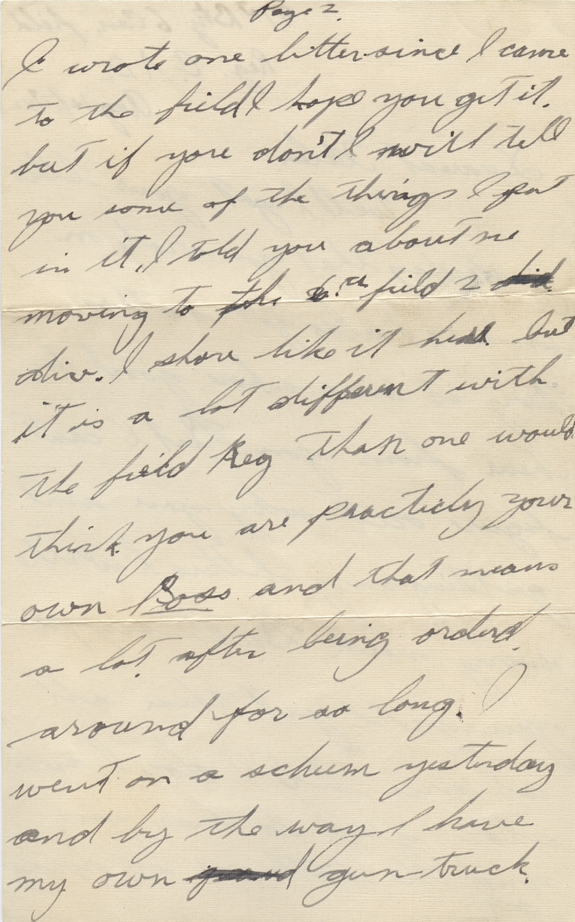 Page 2.
I wrote one letter since I came
to the field I hope you get it.
but if you don't I will tell
you some of the things I put
in it, I told you about me
moving to the 6th field 2
div. I shore like it but
it is a lot different with
the field Reg than one would
think you are practicly your
own Boss and that means
a lot after being orderd
around for so long. I
went on a scheem yesterday
and by the way I have
my own gun-truck.